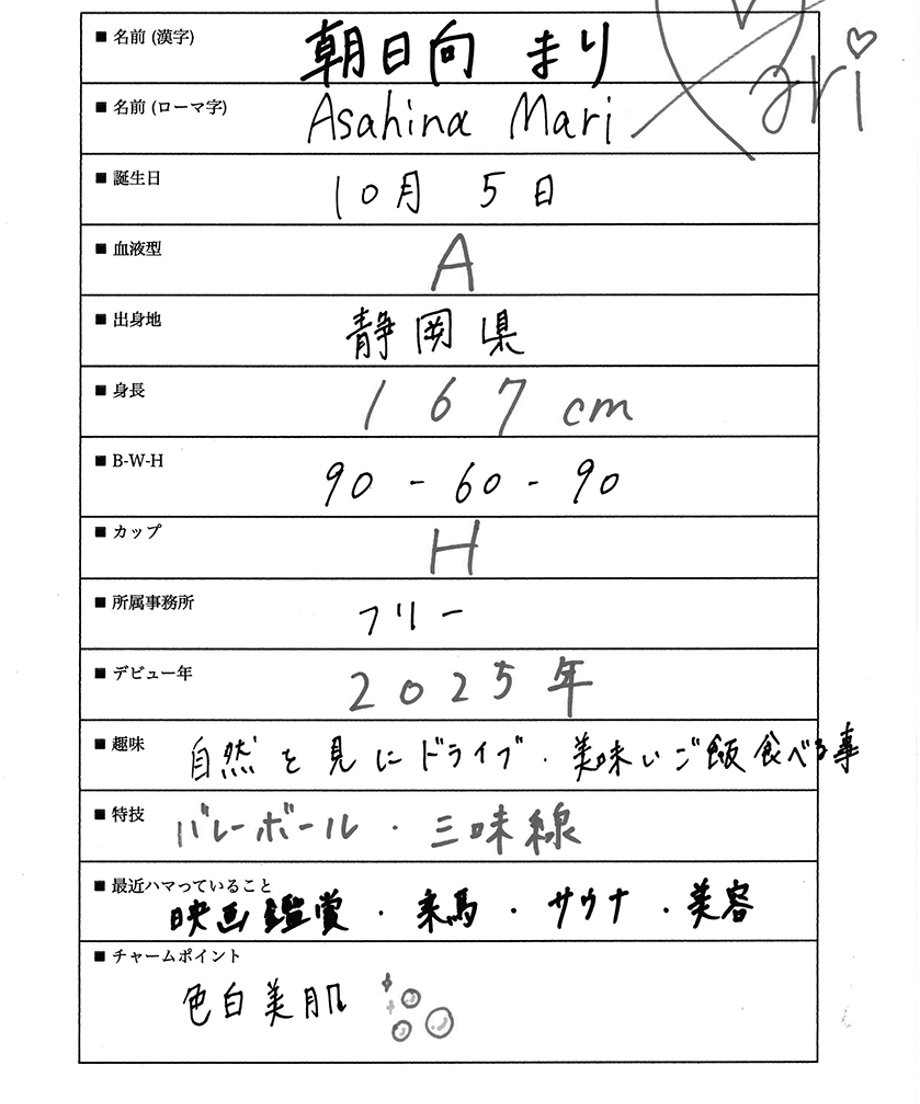 ■ 名前 (漢字)
朝日向 まり
■ 名前 (ローマ字)
Asahina Mari
ari♡
■ 誕生日
10月 5日
■ 血液型
A
■ 出身地
静岡県
■ 身長
167cm
■ B-W-H
90 - 60 - 90
■ カップ
H
■ 所属事務所
フリー
■ デビュー年
2025年
■ 趣味
自然を見にドライブ・美味いご飯食べる事
■ 特技
バレーボール・三味線
■ 最近ハマっていること
映画鑑賞・乗馬・サウナ・美容
■ チャームポイント
色白美肌